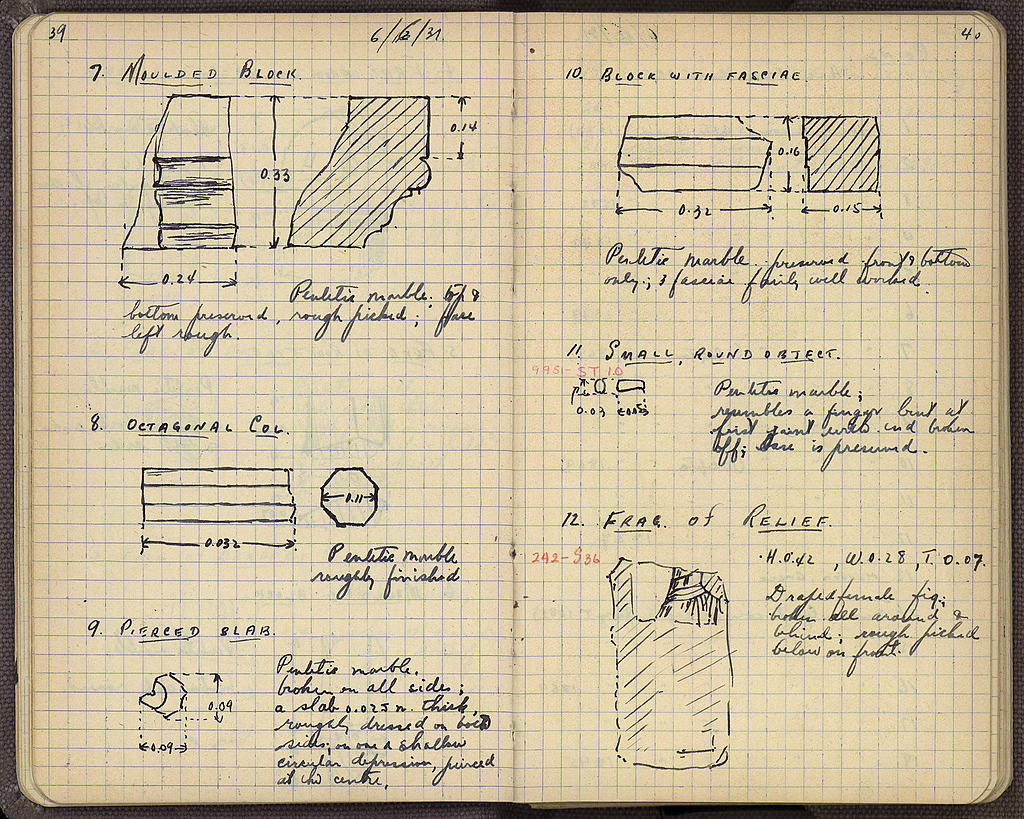 39
6/6/31.
7. MOULDED BLOCK.
0.14
0.33
0.24
Pentelic marble. top &
bottom preserved, rough picked; face
left rough.
8. OCTAGONAL COL.
0.11
0.032
Pentelic marble
roughly finished
9. PIERCED SLAB.
0.09
0.09
Pentelic marble.
broken on all sides;
a slab 0.025 m. thick,
roughly dressed on both
sides; on one a shallow
circular depression, pierced
at the centre.
40
10. BLOCK WITH FASCIAE.
0.16
0.32
0.15
Pentelic marble. preserved front & bottom
only; 3 fasciae fairly well worked.
11. SMALL, ROUND OBJECT.
9951-ST 10
0.03
0.05
Pentelic marble;
resembles a finger bent at
first joint with end broken
off; base is preserved.
12. FRAG. OF RELIEF.
242-S36
H. 0.42, W. 0.28, T. 0.07.
Draped female fig;
broken all around &
behind; rough picked
below on front.